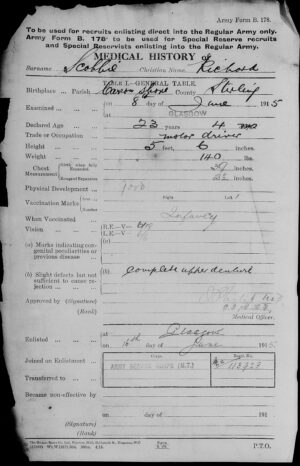 Army Form B. 178.
To be used for recruits enlisting direct into the Regular Army only.
Army Form B. 178A to be used for Special Reserve recruits
and Special Reservists enlisting into the Regular Army.
MEDICAL HISTORY of
Surname Scobbie Christian Name Richard
TABLE I.—GENERAL TABLE.
Birthplace ... Parish Carronshore County Stirling
Examined ... on 8 day of June 1915
at GLASGOW
Declared Age 23 years 4
Trade or Occupation motor driver
Height 5 feet, 6 inches.
Weight 140 lbs.
Chest Measurement
Girth when fully Expanded inches.
Range of Expansion inches.
Physical Development Good
Vaccination Marks Arm Right Left
Number
When Vaccinated Infancy
Vision R.E.—V=
L.E.—V=
(a) Marks indicating congenital peculiarities or previous disease (a)
(b) Slight defects but not sufficient to cause rejection (b) Complete upper denture
Approved by (Signature)
(Rank)
Medical Officer.
Enlisted at Glasgow
on day of June 1915
Joined on Enlistment Corps. Regtl. No.
ARMY SERVICE CORPS (M.T.) 113923
Transferred to
Became non-effective by
on day of 191
(Signature)
(Rank)
P.T.O.